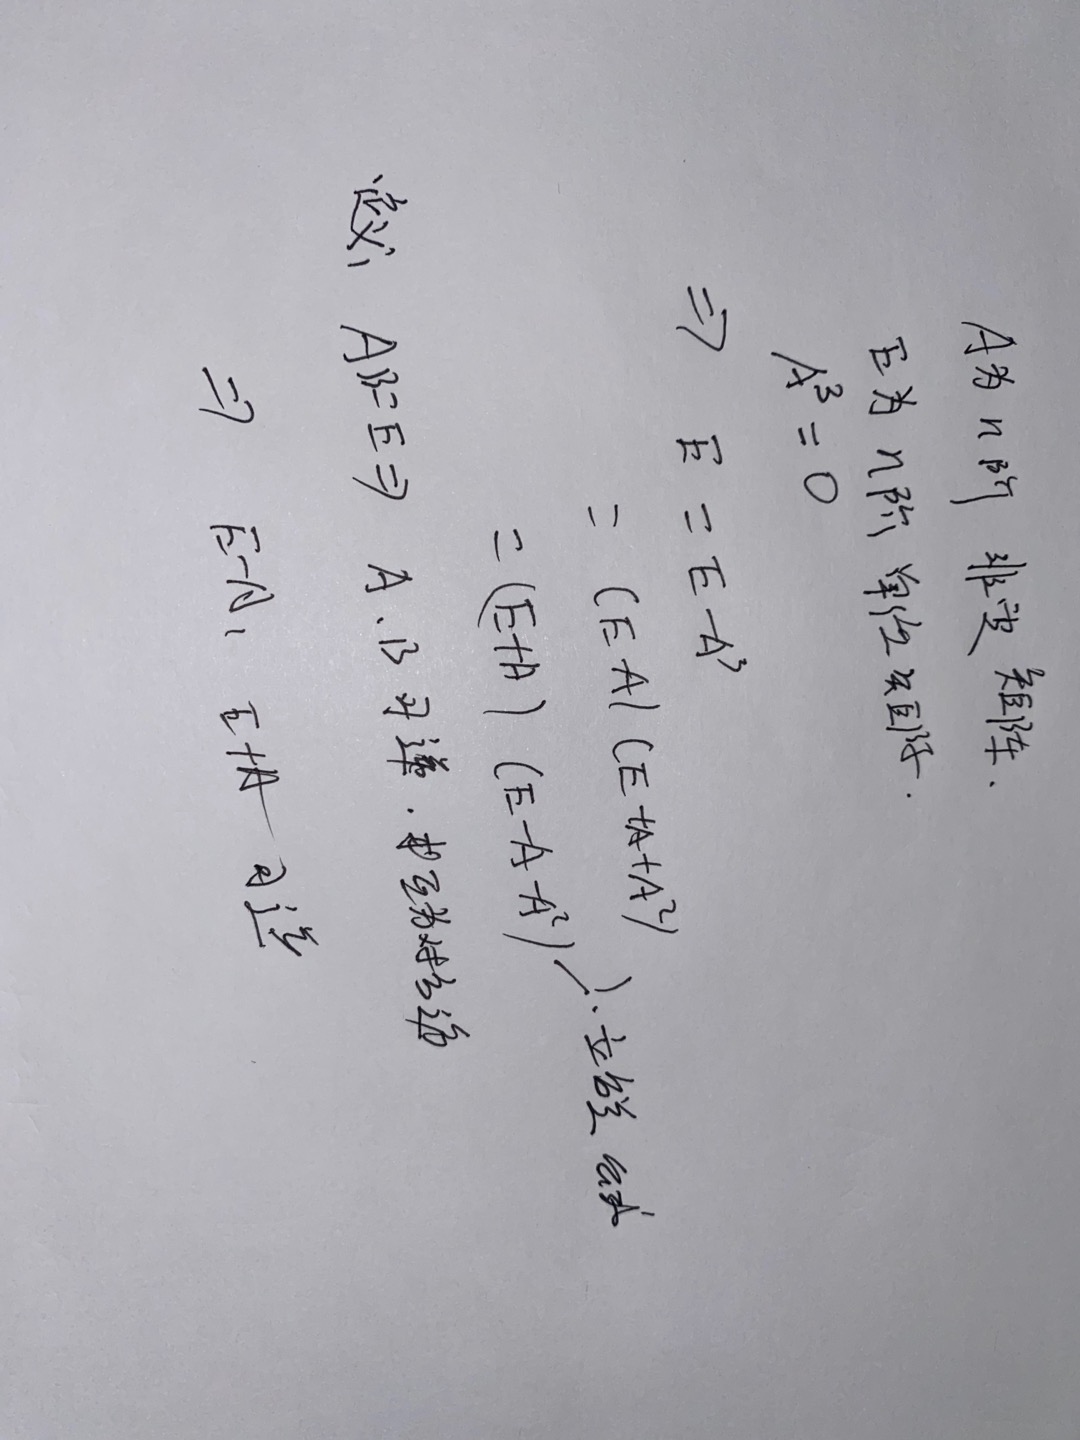 A为n阶 非零 矩阵.
E为n阶 单位矩阵.
A³=0
=> E = E-A³
= (E-A)(E+A+A²)
= (E+A)(E-A-A²) ). 立方差 公式
定义, AB=E => A、B可逆. 
=> E-A, E+A 可逆